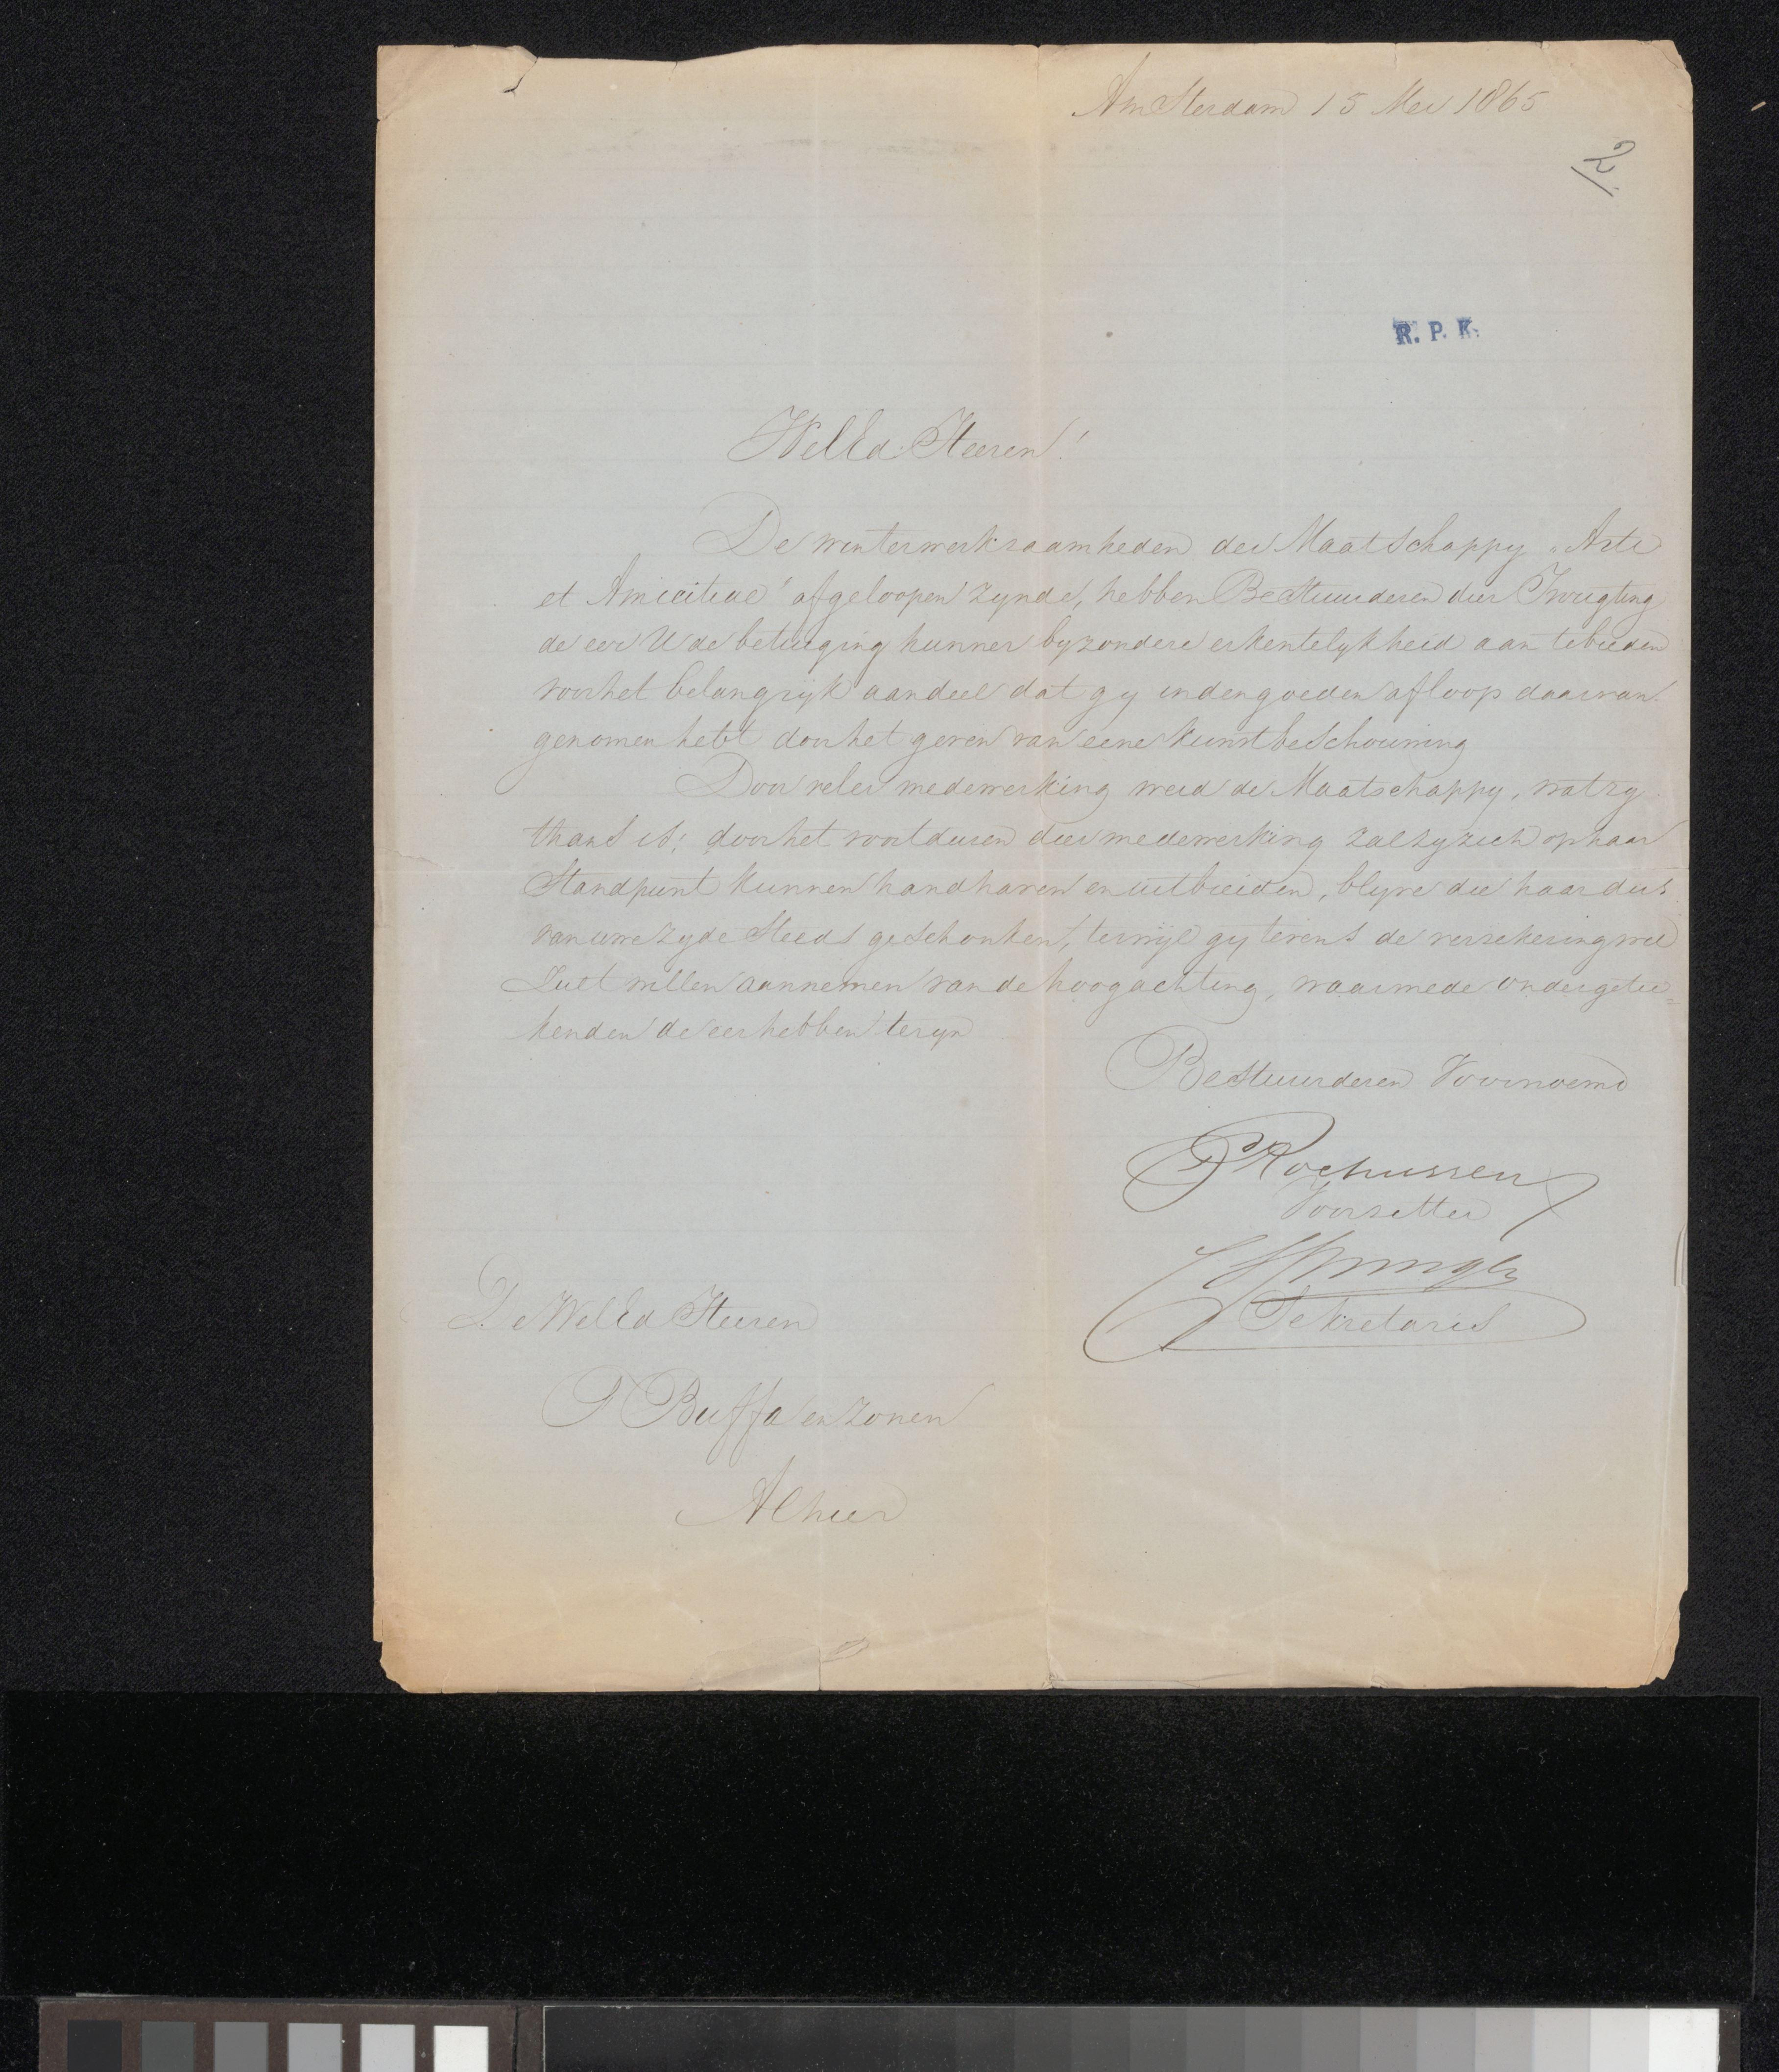 Amsterdam 15 Mei 1865
2
R. P. K.
WelEd. Heeren!
De winterwerkzaamheden der Maatschappy „Arti
et Amicitiae" afgeloopen zynde, hebben Bestuurderen dier Inrigting
de eer U de betuiging hunner byzondere erkentelykheid aan te bieden
voor het belangrijk aandeel dat gy in den goeden afloop daarvan
genomen hebt door het geven van eene kunstbeschouwing
Door veler medewerking werd de Maatschappy, wat zy
thans is; door het voortduren dier medewerking zal zy zich op haar
Standpunt kunnen handhaven en uitbreiden, blyve die haar dus
van uwe zyde steeds geschonken, terwijl gy tevens de verzekering wel
zult willen aannemen van de hoogachting, waarmede ondergetee=
kenden de eer hebben te zyn
Bestuurderen Voornoemd
Rochussen
Voorzitter
C Springer
Sekretaris
De WelEd Heeren
P Buffa en Zonen
Alhier